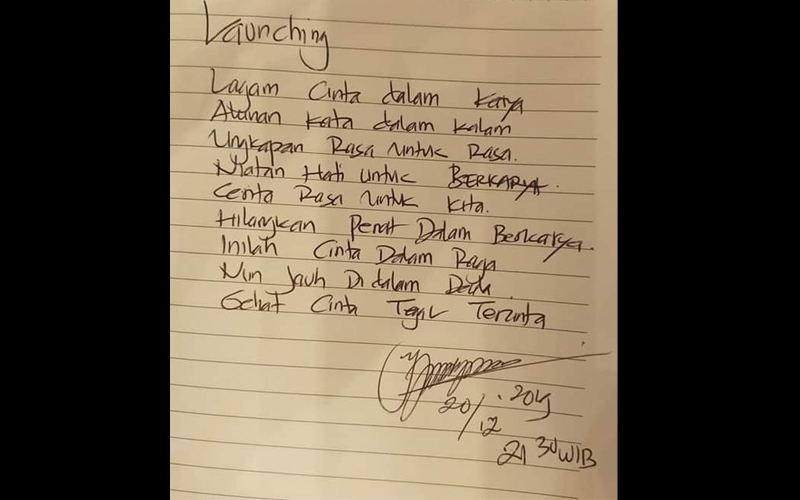 Launching
Lagam Cinta dalam Karya
Atunan Kata dalam Kalam
Ungkapan Rasa untuk Rasa.
Niatan Hati untuk BERKARYA.
Cerita Rasa untuk Kita.
Hilangkan Penat Dalam Berkarya.
Inilah Cinta Dalam Raga
Nun Jauh Di dalam Dada.
Geliat Cinta Tercinta
20/12
21 30 WIB